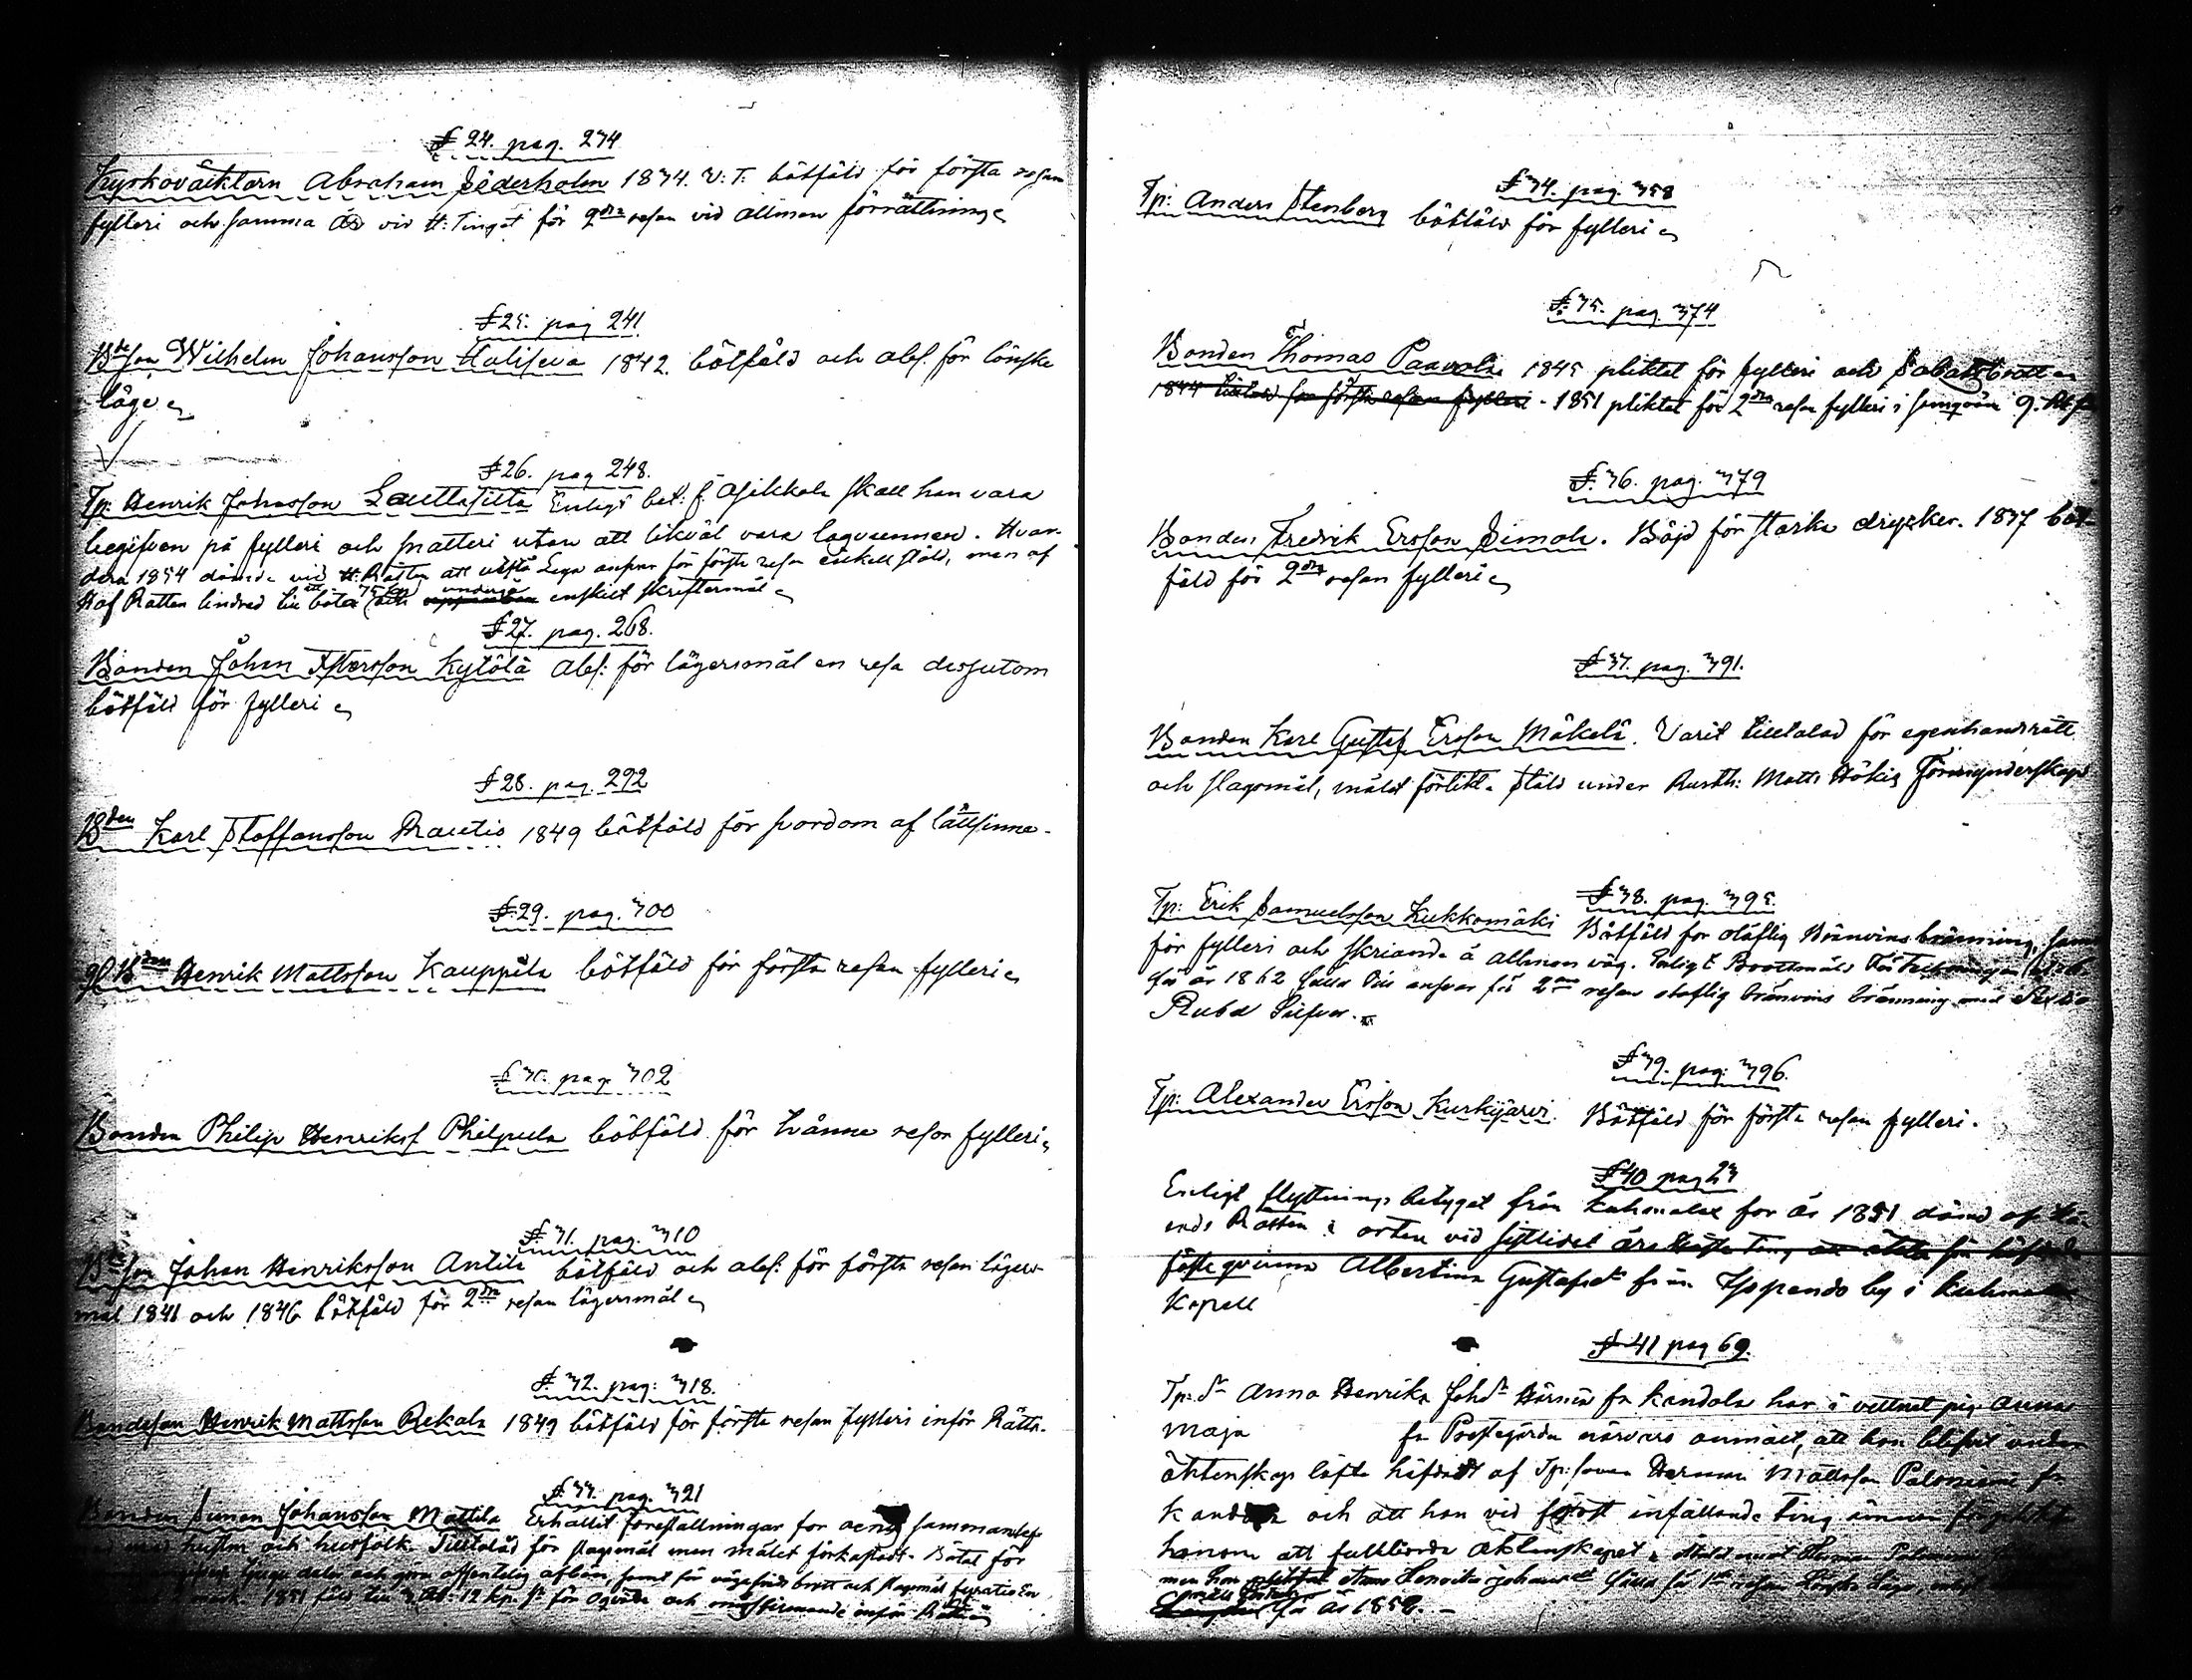 § 24. pag. 234
Kyrkoväcktarn Abraham Söderholm 1834. V: T: bötfäld för första resan
fylleri och samma år vid H: Tinget för 2dra resan vid allmän förrättning
§ 25. pag 241
Bdeson Wilhelm Johansson Haliseva 1842. bötfäld och abs. för lönske
läge
§ 26. pag 248.
Tp: Henrik Johansson Lauttasilta Enligt bet: f. Asikkala skall han vara
begifven på fylleri och snatteri utan att likväl vara lagvunnen. Hvar-
dera 1854 dömde vid H. Rätten att utstå Lega ansvar för första resan enkel stöld, men af
Hof Rätten lindrad till att böta och undergå enskilt skriftermål
§ 27. pag. 268.
Bonden Johan Kytölä abs: för lägersmål en resa dessutom
bötfäld för fylleri
§ 28. pag. 292
Bden Karl Staffansson Rautio 1849 bötfäld för svordom af lättsinne.
§ 29. pag. 300
gl Bden Henrik Mattsson Kauppila bötfäld för första resan fylleri
§ 30. pag. 302
Bonden Philip Henrikss. Philpula bötfäld för tvänne resor fylleri
§ 31. pag. 310
Bdeson Johan Henriksson Antila bötfäld och abs: för första resan lägers-
mål 1841 och 1846 bötfäld för 2dra resan lägersmål
§ 32. pag: 318.
Bondeson Henrik Mattsson Rekola 1849 bötfäld för första resan fylleri inför Rätta.
§ 33. pag. 321
Bonden Simon Johansson Mattila Erhållit föreställningar för oenig sammanlef-
nad med hustru och husfolk. Tilltalad för slagsmål men målet förkastadt. Bötat för
och göra offentelig afbön, samt för vägafridsbrott och slagsmål
1851 fäld till 3 Rb: 12 kp. Sr för oqväde och inför Rätta
§ 34. pag. 358
Tp: Anders Stenberg bötfäld för fylleri
§ 35. pag. 374
Bonden Thomas Paavola 1845 pliktat för fylleri och Sabatsbrott
1844 bötfäld för första resan fylleri - 1851 pliktat för 2dra resan fylleri i
§ 36. pag. 379
Bonden Fredrik Ersson Simola. Böjd för starka drycker. 1837 böt-
fäld för 2dra resan fylleri
§ 37. pag. 391.
Bonden Karl Gustaf Ersson Mäkelä. Varit tilltalad för egenhandsrätt
och slagsmål, målet förlikt. Stäld under Rusth: Matts Hökis Förmynderskap
§ 38. pag. 395.
Tp: Erik Samuelsson Kukkomäki Bötfäld för olaflig Bränvinsbränning, samt
för fylleri och skriande å allmen väg. Enligt Brottmåls Förteckningen
för år 1862 fälld till ansvar för 2dra resan olaflig bränvins bränning med
Rubel Silfver.
§ 39. pag: 396.
Tp: Alexander Ersson Kurkijärvi. Bötfäld för första resan fylleri.
§ 40 pag 23
Enligt flyttnings betyget från Kuhmalax för år 1851 dömd af Hä-
rads Rätten i orten vid sistlidet års Höste Ting att äkta sin häfdade
fästeqvinna Albertina Gustafsdr från by i Kuhmalax
Kapell
§ 41 pag 69.
Tp: dr Anna Henrika Johdr fr Kandola har i vittnet pig. Anna
Maja fr Prestegården närvaro anmält, att hon blifvit under
äktenskaps löfte häfdad af Tp: sonen Herman Mattsson fr
Kandola och att hon vid först infallande Ting ämnar
honom att fullborda äktenskapet
men han Johansdr fälld för 1sta resan Lönske läge,
för år 1858.